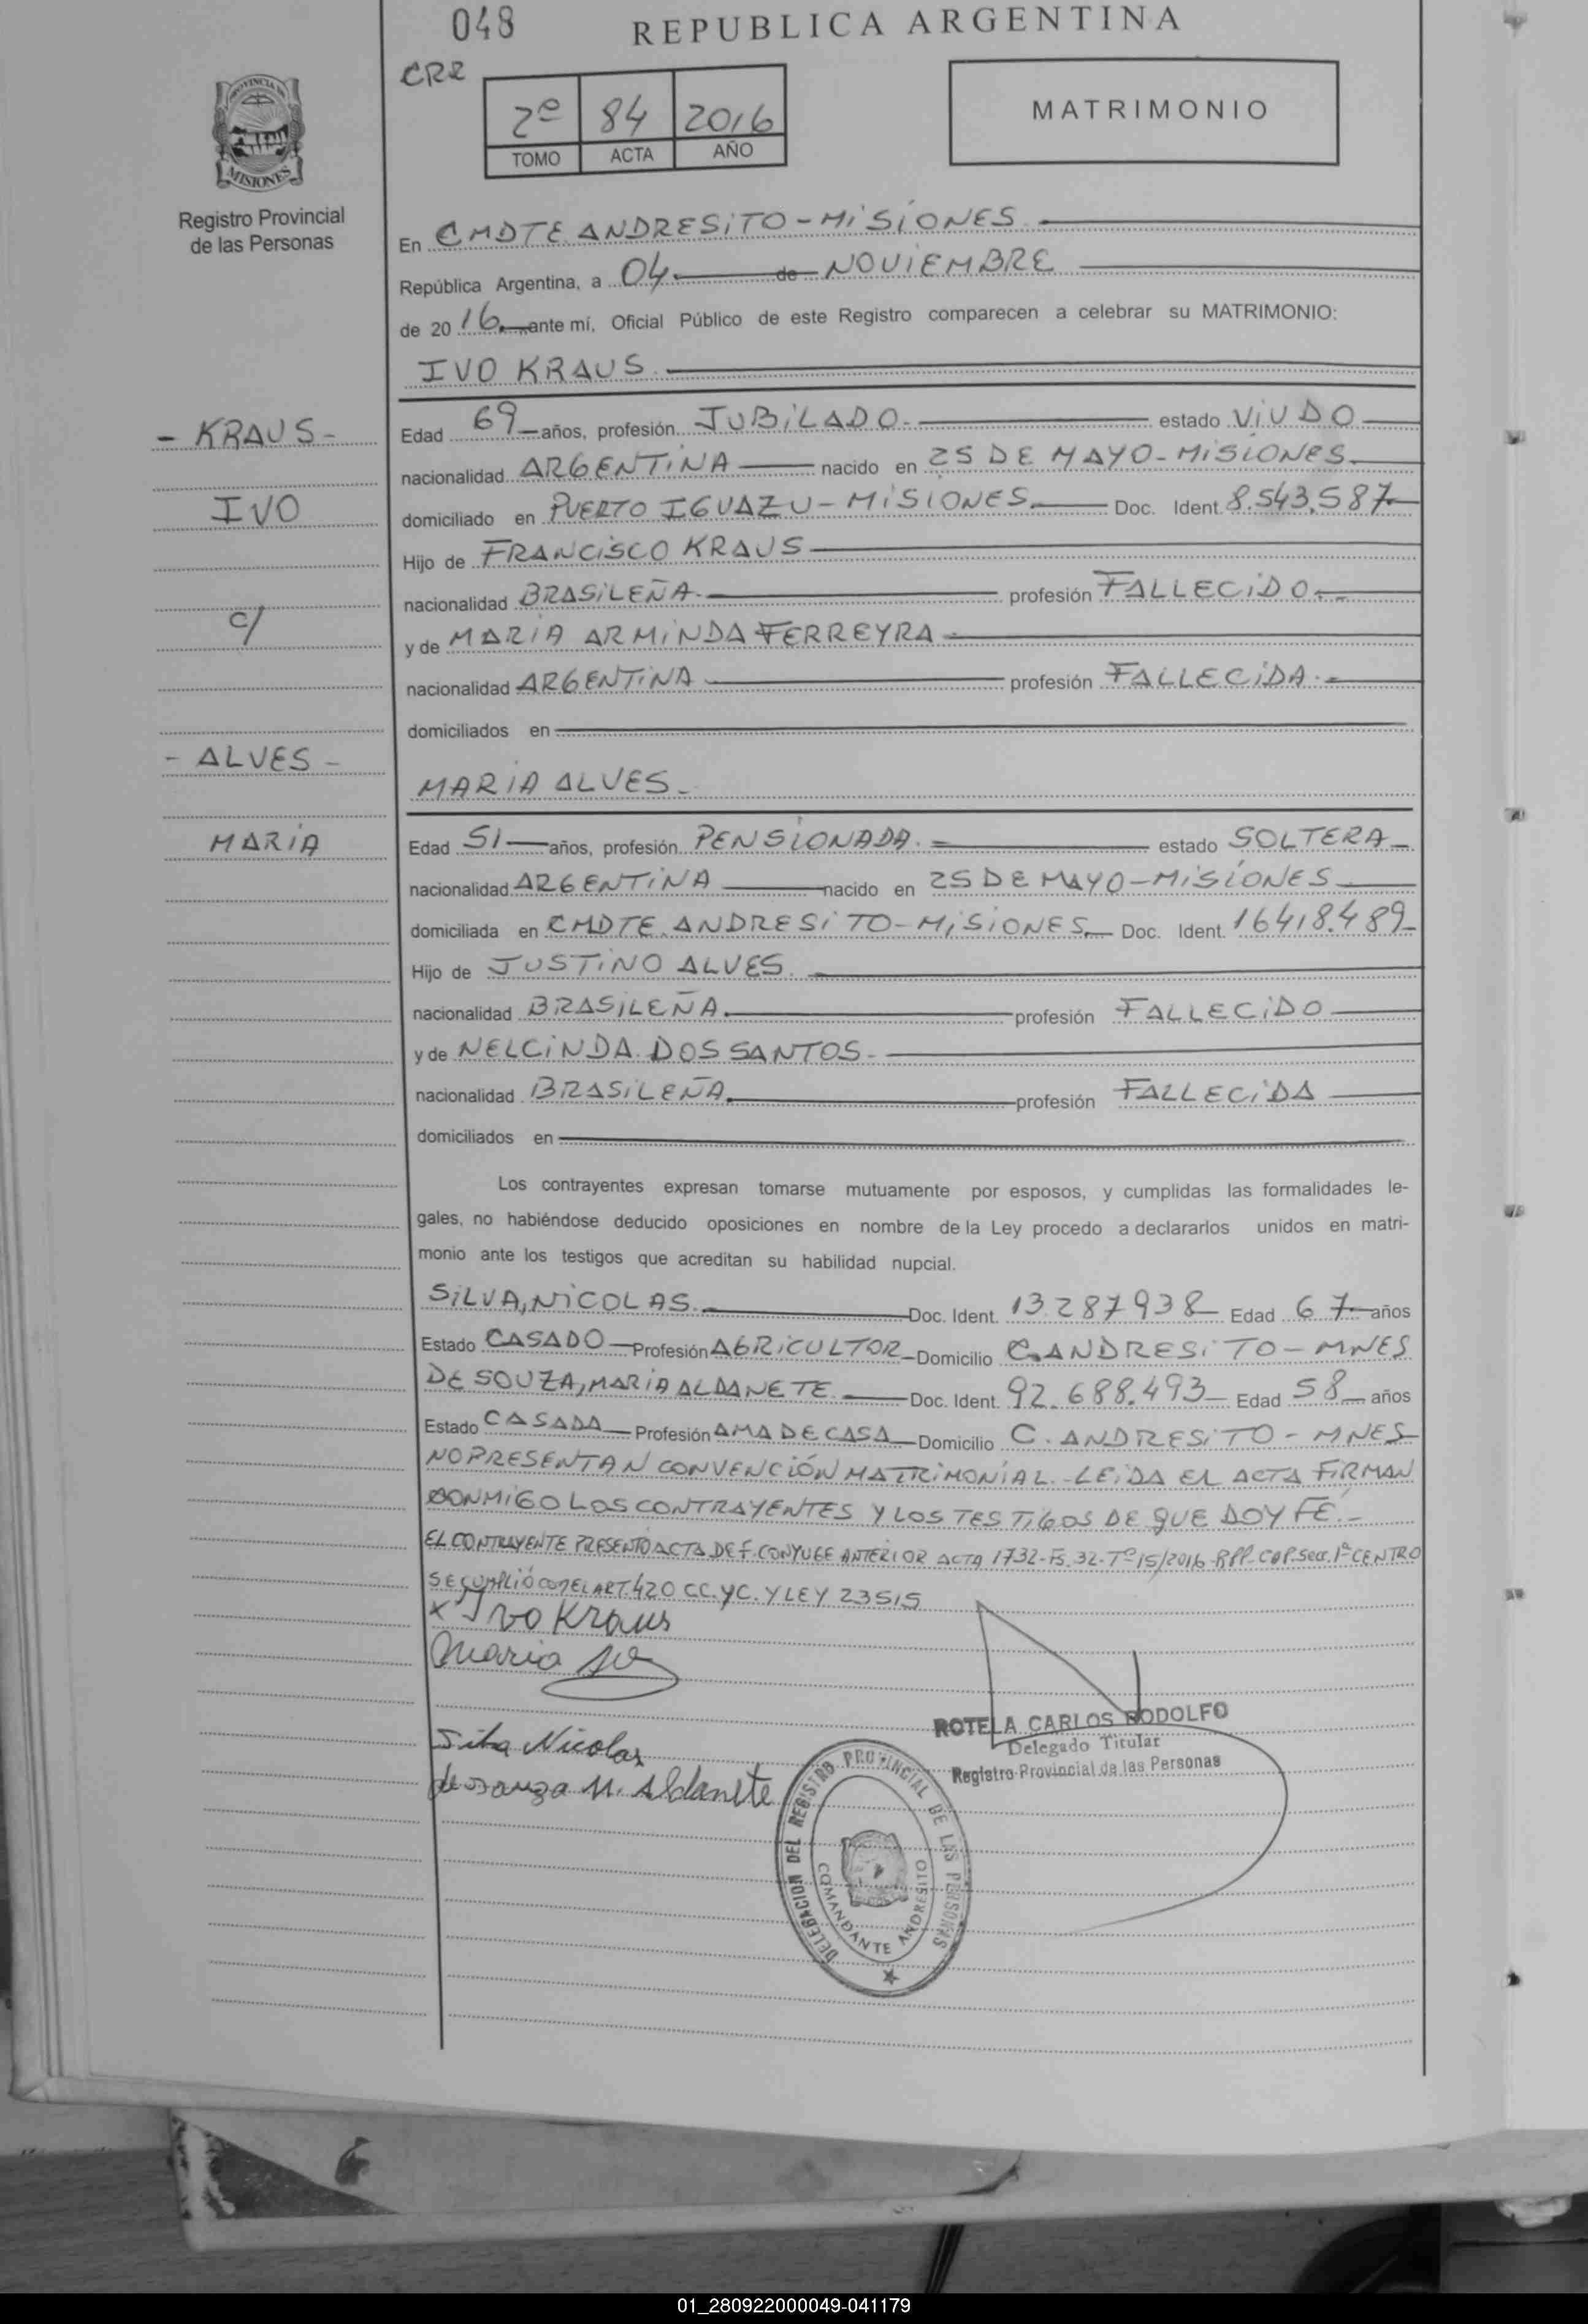 048
REPUBLICA ARGENTINA
CRR
2º 84 2016
TOMO ACTA AÑO
MATRIMONIO
PROVINCIA DE
MISIONES
Registro Provincial
de las Personas
En CMDTE. ANDRESITO - MISIONES
República Argentina, a 04 de NOVIEMBRE
de 2016 ante mí, Oficial Público de este Registro comparecen a celebrar su MATRIMONIO:
IVO KRAUS
- KRAUS -
IVO
c/
- ALVES -
MARIA
Edad 69 años, profesión JUBILADO. estado VIUDO
nacionalidad ARGENTINA nacido en 25 DE MAYO - MISIONES
domiciliado en PUERTO IGUAZU - MISIONES. Doc. Ident. 8.543.587
Hijo de FRANCISCO KRAUS
nacionalidad BRASILEÑA. profesión FALLECIDO.
y de MARIA ARMINDA FERREYRA
nacionalidad ARGENTINA profesión FALLECIDA.
domiciliados en
MARIA ALVES
Edad 51 años, profesión PENSIONADA. estado SOLTERA
nacionalidad ARGENTINA nacido en 25 DE MAYO - MISIONES
domiciliada en CMDTE. ANDRESITO - MISIONES. Doc. Ident. 16418.489
Hijo de JUSTINO ALVES.
nacionalidad BRASILEÑA. profesión FALLECIDO
y de NELCINDA DOS SANTOS.
nacionalidad BRASILEÑA. profesión FALLECIDA
domiciliados en
Los contrayentes expresan tomarse mutuamente por esposos, y cumplidas las formalidades le-
gales, no habiéndose deducido oposiciones en nombre de la Ley procedo a declararlos unidos en matri-
monio ante los testigos que acreditan su habilidad nupcial.
SILVA, NICOLAS. Doc. Ident. 13.287938 Edad 67 años
Estado CASADO Profesión AGRICULTOR Domicilio C. ANDRESITO - MNES
DE SOUZA, MARIA ALDANETE Doc. Ident. 92.688.493 Edad 58 años
Estado CASADA Profesión AMA DE CASA Domicilio C. ANDRESITO - MNES
NO PRESENTAN CONVENCIÓN MATRIMONIAL. - LEIDA EL ACTA FIRMAN
CONMIGO LOS CONTRAYENTES Y LOS TESTIGOS DE QUE DOY FÉ. -
EL CONTRAYENTE PRESENTO ACTA DE F. CONYUGE ANTERIOR ACTA 1732-Fs. 32-Tº 15/2016-RPP-CAP. Secc. 1ª CENTRO
SE CUMPLIÓ CON EL ART. 420 CC. YC. Y LEY 23515
x Ivo Kraus
Maria
Silva Nicolas
de souza M. Aldanete
ROTELA CARLOS RODOLFO
Delegado Titular
Registro Provincial de las Personas
DELEGACION DEL REGISTRO PROVINCIAL DE LAS PERSONAS
COMANDANTE ANDRESITO
01_280922000049-041179